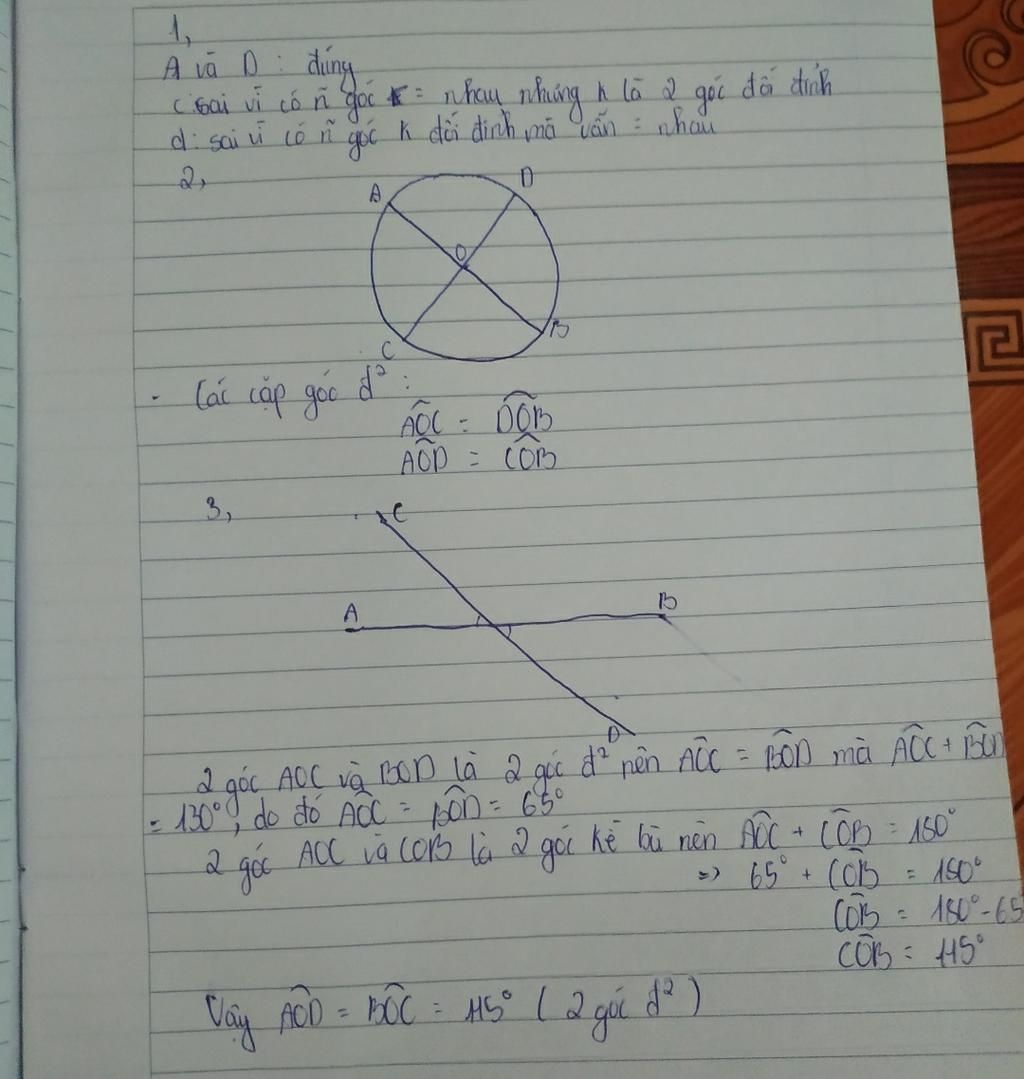 1,
A và D : đúng
c: sai vì có ñ góc = nhau nhưng k là 2 góc đối đỉnh
d: sai vì có ñ góc k đối đỉnh mà vẫn = nhau
2,
A D
O
C B
- Các cặp góc đ² :
AÔC = DÔB
AÔD = CÔB
3,
C
A B
D
2 góc AOC và BOD là 2 góc đ² nên AÔC = BÔD mà AÔC + BÔD
= 130°, do đó AÔC = BÔD = 65°
2 góc AOC và COB là 2 góc kề bù nên AÔC + CÔB = 180°
=> 65° + CÔB = 180°
CÔB = 180° - 65
CÔB = 115°
Vậy AÔD = BÔC = 115° ( 2 góc đ² )